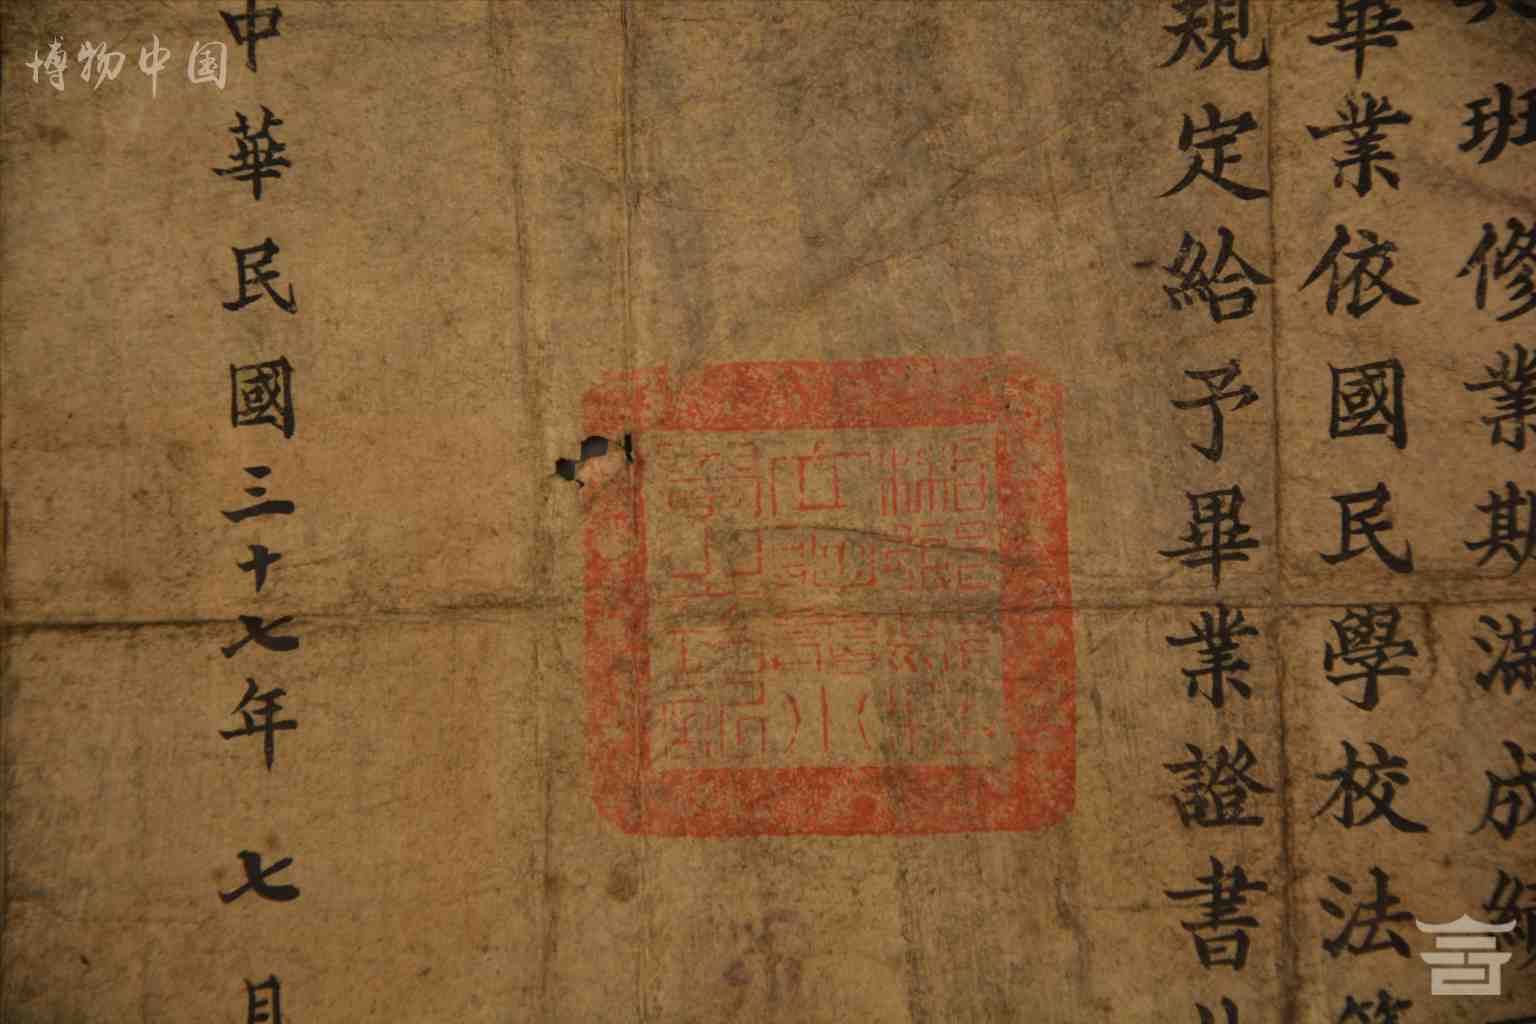 班修業期滿成績
畢業依國民學校法第
規定給予畢業證書此
中華民國三十七年七月
博物中国